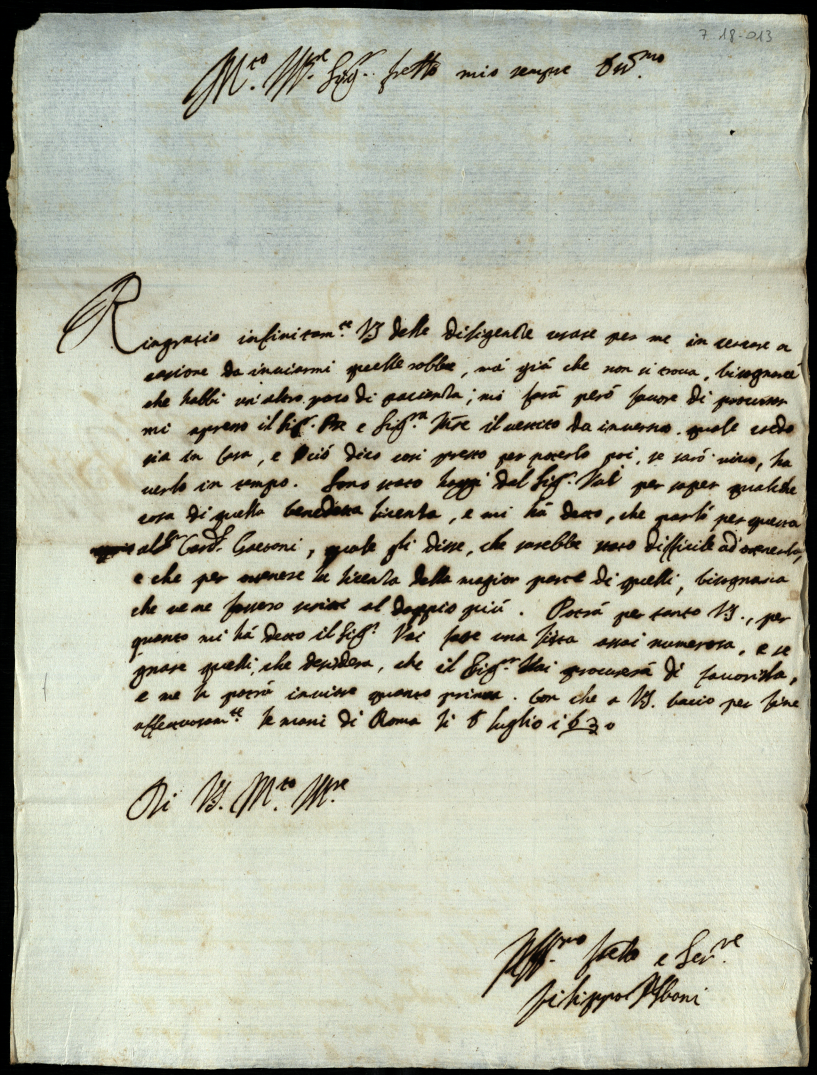 7 18-013
M.to Ill.re Sig.r fratello mio sempre
Ringratio infinitam.te VS delle diligenze usate per me in cercare o
casione da inviarmi quelle robbe, mà già che non si trova, bisognarà
che habbi un'altro poco di patienza; mi farà però favore di procurar
mi apresso il Sig.r Pre e Sig.ra Mre il vestito da inverno quale credo
sia in casa, e ciò dico così presto per poterlo poi, se sarò vivo, ha
verlo in tempo. Sono stato hoggi dal Sig.r per saper qualche
cosa di questa benedetta licenza, e mi hà detto, che parlò per questa
al Card. Gaetani, quale gli disse, che sarebbe stato difficile ad
e che per ottenere la licenza della magior parte di quelli, bisognaria
che ve ne fossero scritti al doppio più. Potrà per tanto VS., per
quanto mi hà detto il Sig.r fare una lista assai numerosa, e se
gnare quelli, che desidera, che il Sig.r procurerà di favorirla,
e me la potrà inviare quanto prima. Con che a VS. bacio per fine
affettuosam.te le mani di Roma li 8 luglio 1670
Di VS. M.to Ill.re
Aff.mo fratello e Ser.re
Filippo Alboni